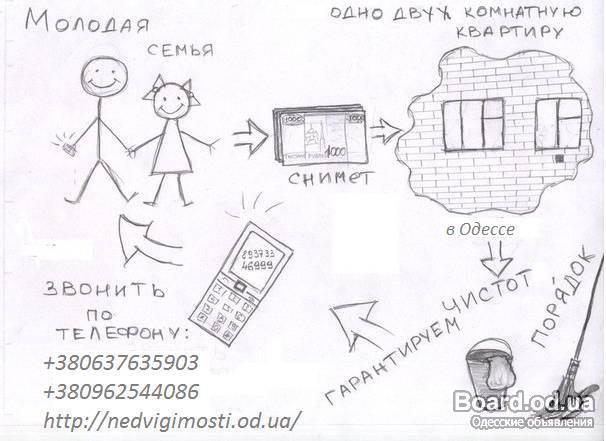 МОЛОДАЯ
СЕМЬЯ
ОДНО ДВУХ КОМНАТНУЮ
КВАРТИРУ
1000
1000
1000
СНИМЕТ
в Одессе
893733
46999
ЗВОНИТЬ
ПО
ТЕЛЕФОНУ:
+380637635903
+380962544086
http://nedvigimosti.od.ua/
ГАРАНТИРУЕМ
ЧИСТОТ
ПОРЯДОК
Board.od.ua
Одесские объявления